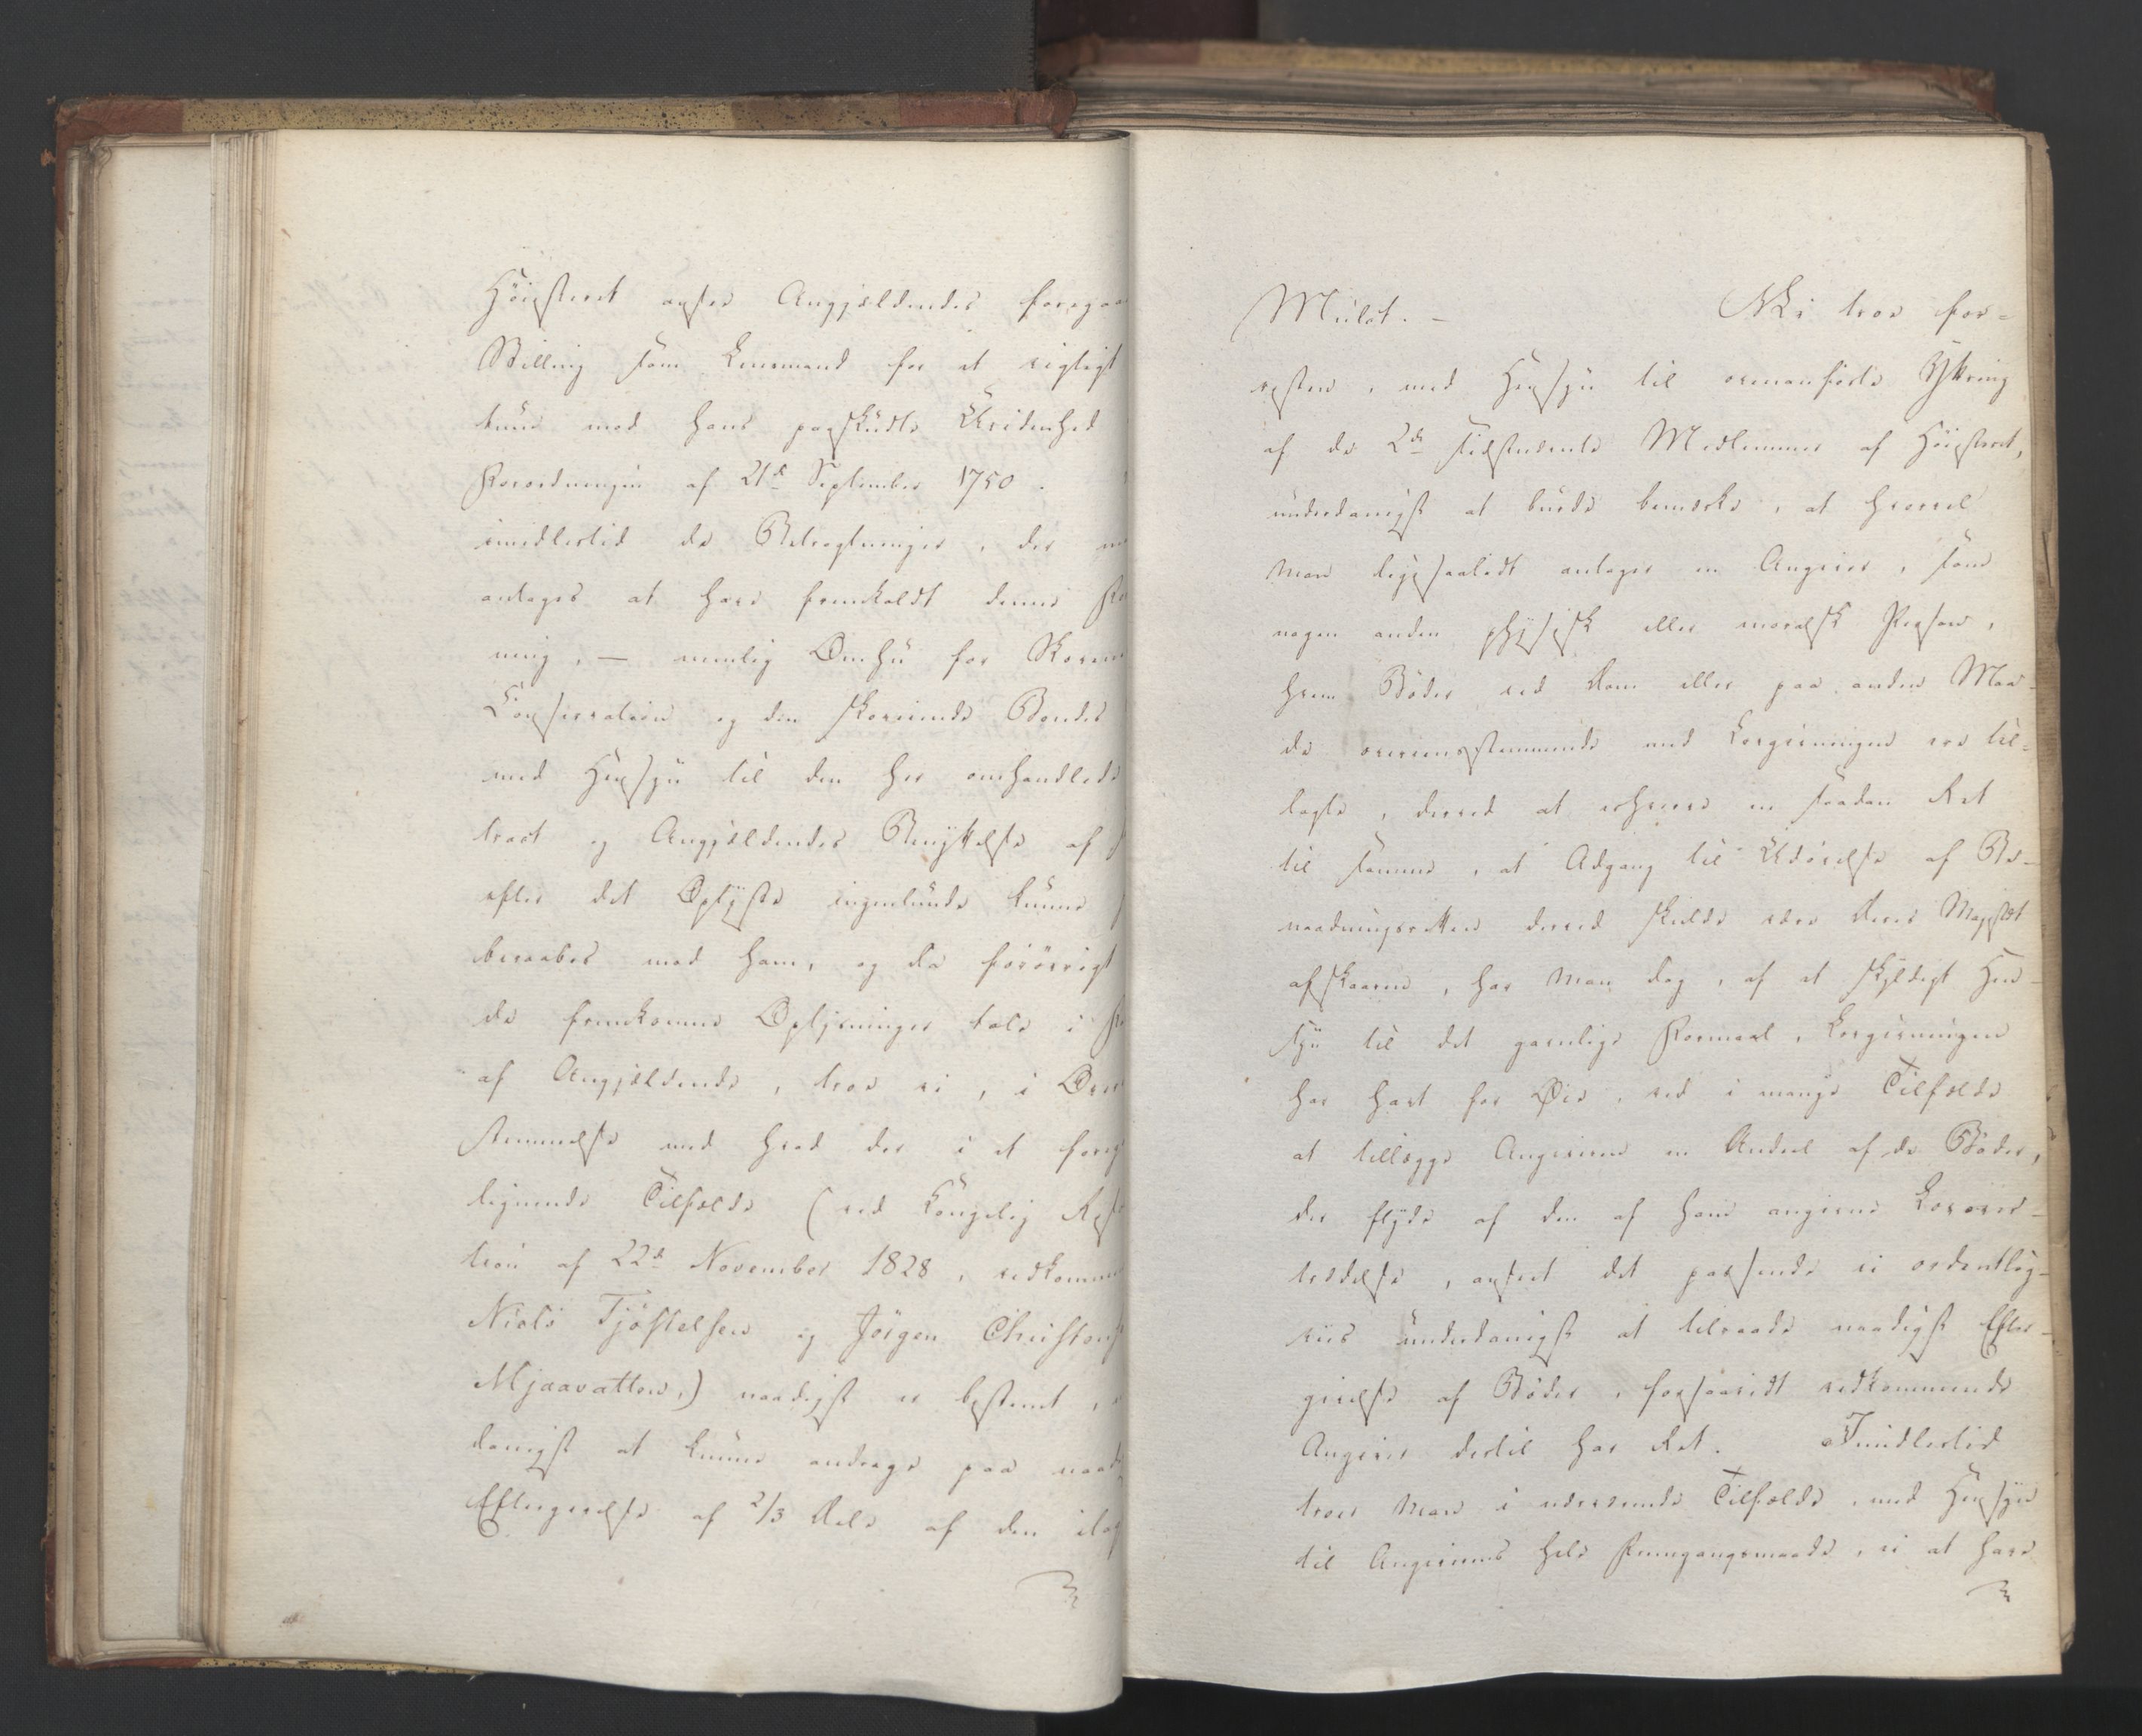 Höiesteret anseer Angjældendes foregaa
Stilling som Lensmand for et vigtigt
kunde mod hans paaskudte Uvidenhed
Forordningen af 21de September 1750.
imidlertid de Betragtninger, der m
antages at have fremkaldt denne Fo
ning, — nemlig Omhu for Skoven
Conservation og den skoveiende Bondes
med Hensyn til den her omhandlede
tract og Angjældendes Benyttelse af
efter det Oplyste ingenlunde kunne
beraabes mod ham, og da forövrigt
de fremkomne Oplysninger tale i F
af Angjældende, troe vi, i Over
stemmelse med hvad der i et foreg
lignende Tilfælde (ved Kongelig Reso
tion af 22de November 1828, vedkomme
Niels Tjöstelsen og Jörgen Christens
Mjaavatten,) naadigst er bestemt,
danigst at kunne andrage paa naad
Eftergivelse af 2/3 Dele af den ilag
Mulct. — Vi troe for-
resten, med Hensyn til ovenanförte Yttring
af de 2de sidstvoterende Medlemmer af Höiesteret,
underdanigst at burde bemærke, at hvorvel
man ligesaalidt antager en Angiver, som
nogen anden physisk eller moralsk Person,
hvem Böder ved Dom eller paa anden Maa-
de overeensstemmende med Lovgivningen ere til-
lagte, derved at erhverve en saadan Ret
til samme, at Adgang til Udövelse af Be-
naadningsretten derved skulde være Deres Majestæt
afskaaren, har man dog, af et skyldigt Hen-
syn til det gavnlige Formaal, Lovgivningen
har havt for Öie, ved i mange Tilfælde
at tillægge Angiveren en Andeel af de Böder,
der flyde af den af ham angivne Lovover-
trædelse, anseet det passende ei ordentlig-
viis underdanigst at tilraade naadigst Efter-
givelse af Böder, forsaavidt vedkommende
Angiver dertil har Ret. Imidlertid
troer man i nærværende Tilfælde, med Hensyn
til Angiverens hele Fremgangsmaade, ei at have